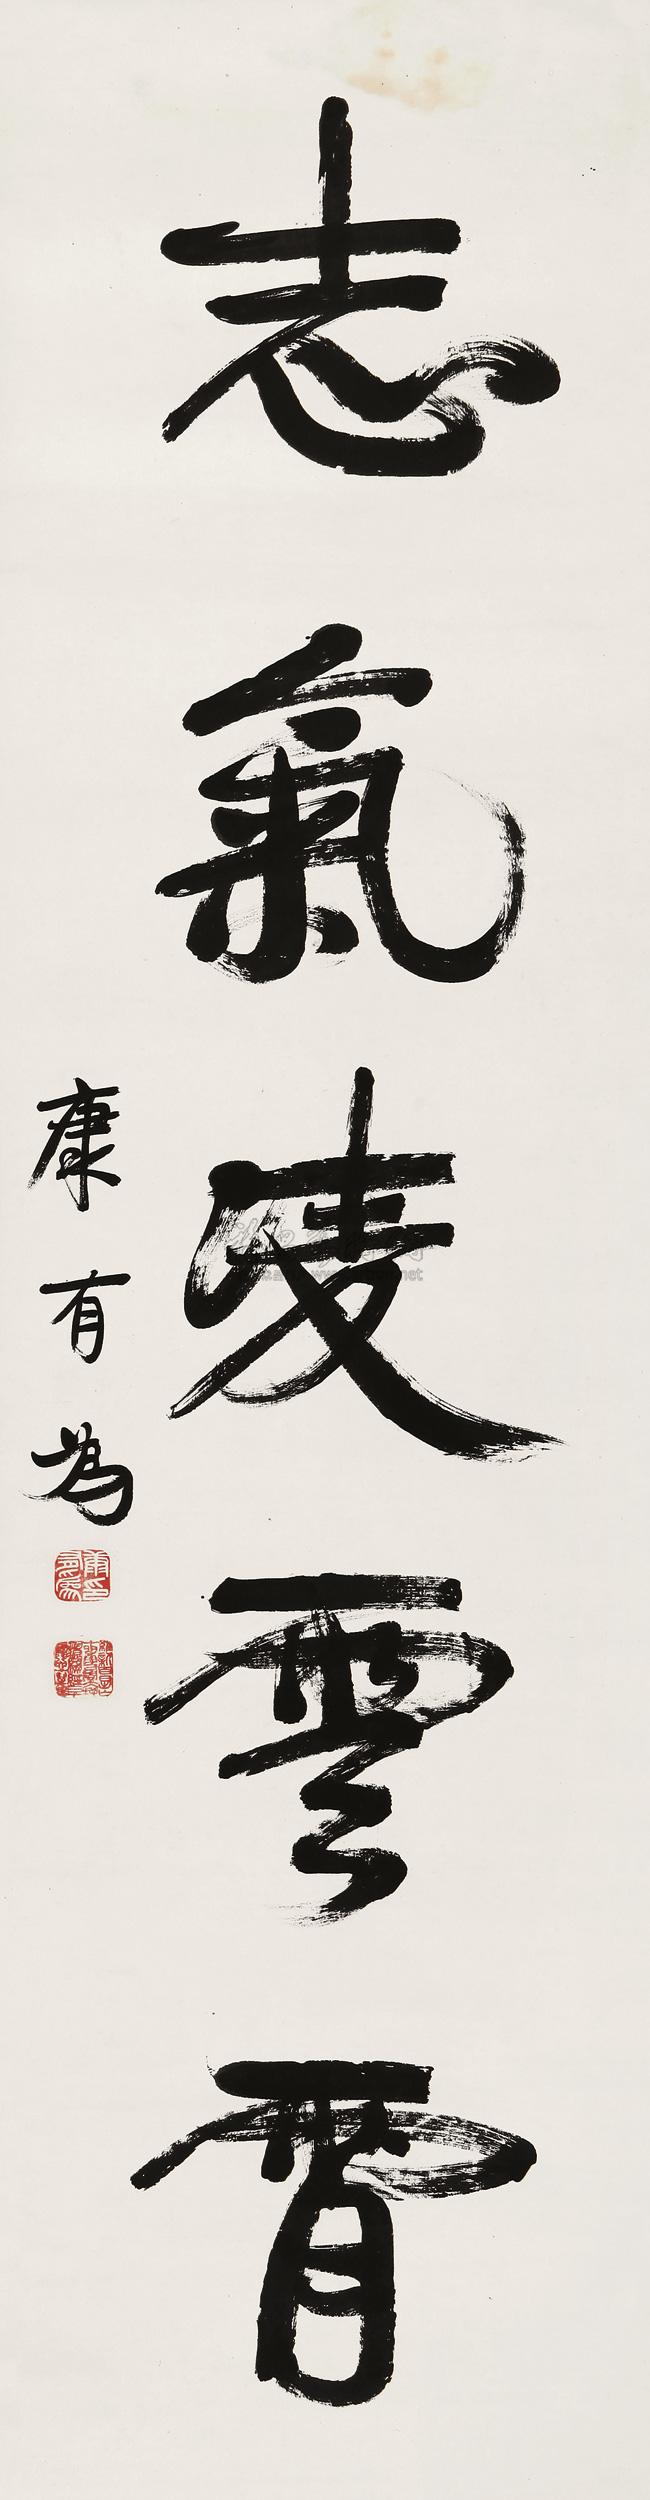 志氣凌雲霄
康有為